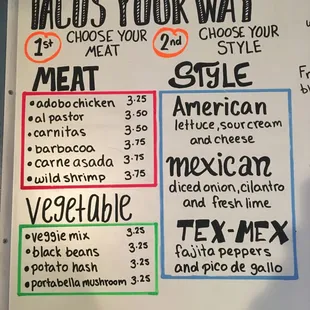 TACOS YOUR WAY
1st CHOOSE YOUR MEAT
2nd CHOOSE YOUR STYLE
MEAT
• adobo chicken 3.25
• al pastor 3.50
• carnitas 3.50
• barbacoa 3.75
• carne asada 3.75
• wild shrimp 3.75
vegetable
• veggie mix 3.25
• black beans 3.25
• potato hash 3.25
• portabella mushroom 3.25
STYLE
American
lettuce, sour cream
and cheese
mexican
diced onion, cilantro
and fresh lime
TEX-MEX
fajita peppers
and pico de gallo